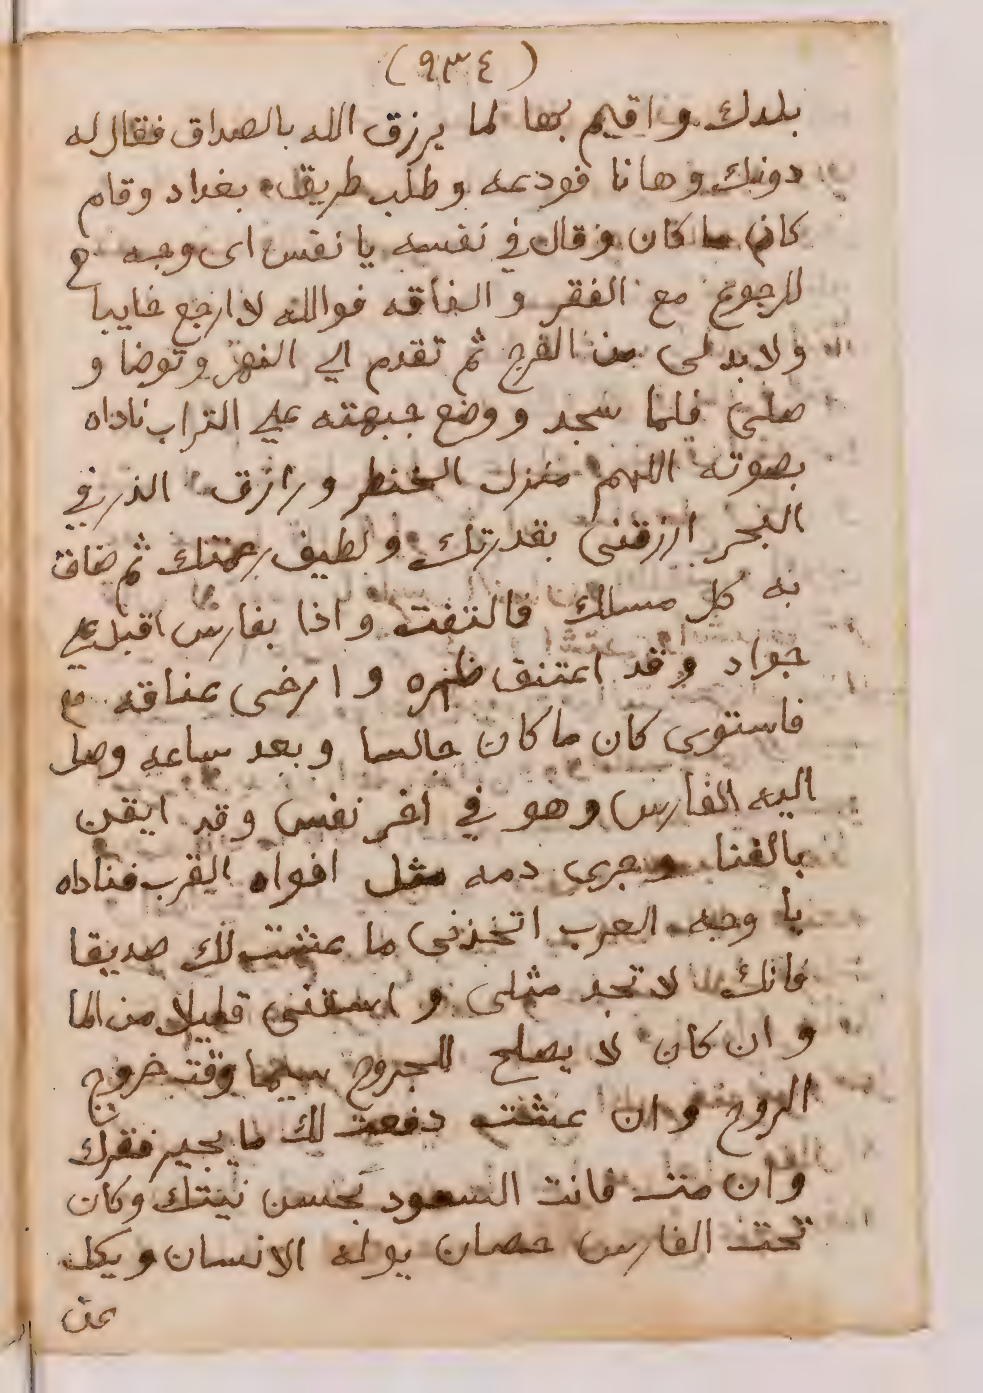 (٩٣٤)
بلدك واقيم بها لما يرزق الله بالصداق فقال له
دونك وهانا فودعه وطلب طريق بغداد وقام
كان ما كان وقال في نفسه يا نفس اى وجه
للرجوع مع الفقر و الفاقه فوالله لا ارجع خايبا
ولا بد لى من الفرج ثم تقدم الي النهر وتوضا و
صلى فلما سجد ووضع جبهته علي التراب ناداه
بصوته اللهم منزل القطر و رازق الذر في
البحر ارزقنى بقدرتك ولطيف رحمتك ثم ضاق
به كل مسلك فالتفت واذا بفارس اقبل علي
جواد وقد اعتنق ظهره و ارخى عناقه
فاستوى كان ما كان جالسا وبعد ساعه وصل
اليه الفارس وهو في اخر نفس وقد ايقن
بالفنا وجرى دمه مثل افواه القرب فناداه
يا وجه العرب اتخذنى ما عشت لك صديقا
فانك لا تجد مثلى و اسقنى قليلا من الما
و ان كان لا يصلح للجروح سيما وقت خروج
الروح و ان عشت دفعت لك ما يجبر فقرك
وان مت فانت السعود بحسن نيتك وكان
تحت الفارس حصان يوله الانسان ويكل
عن